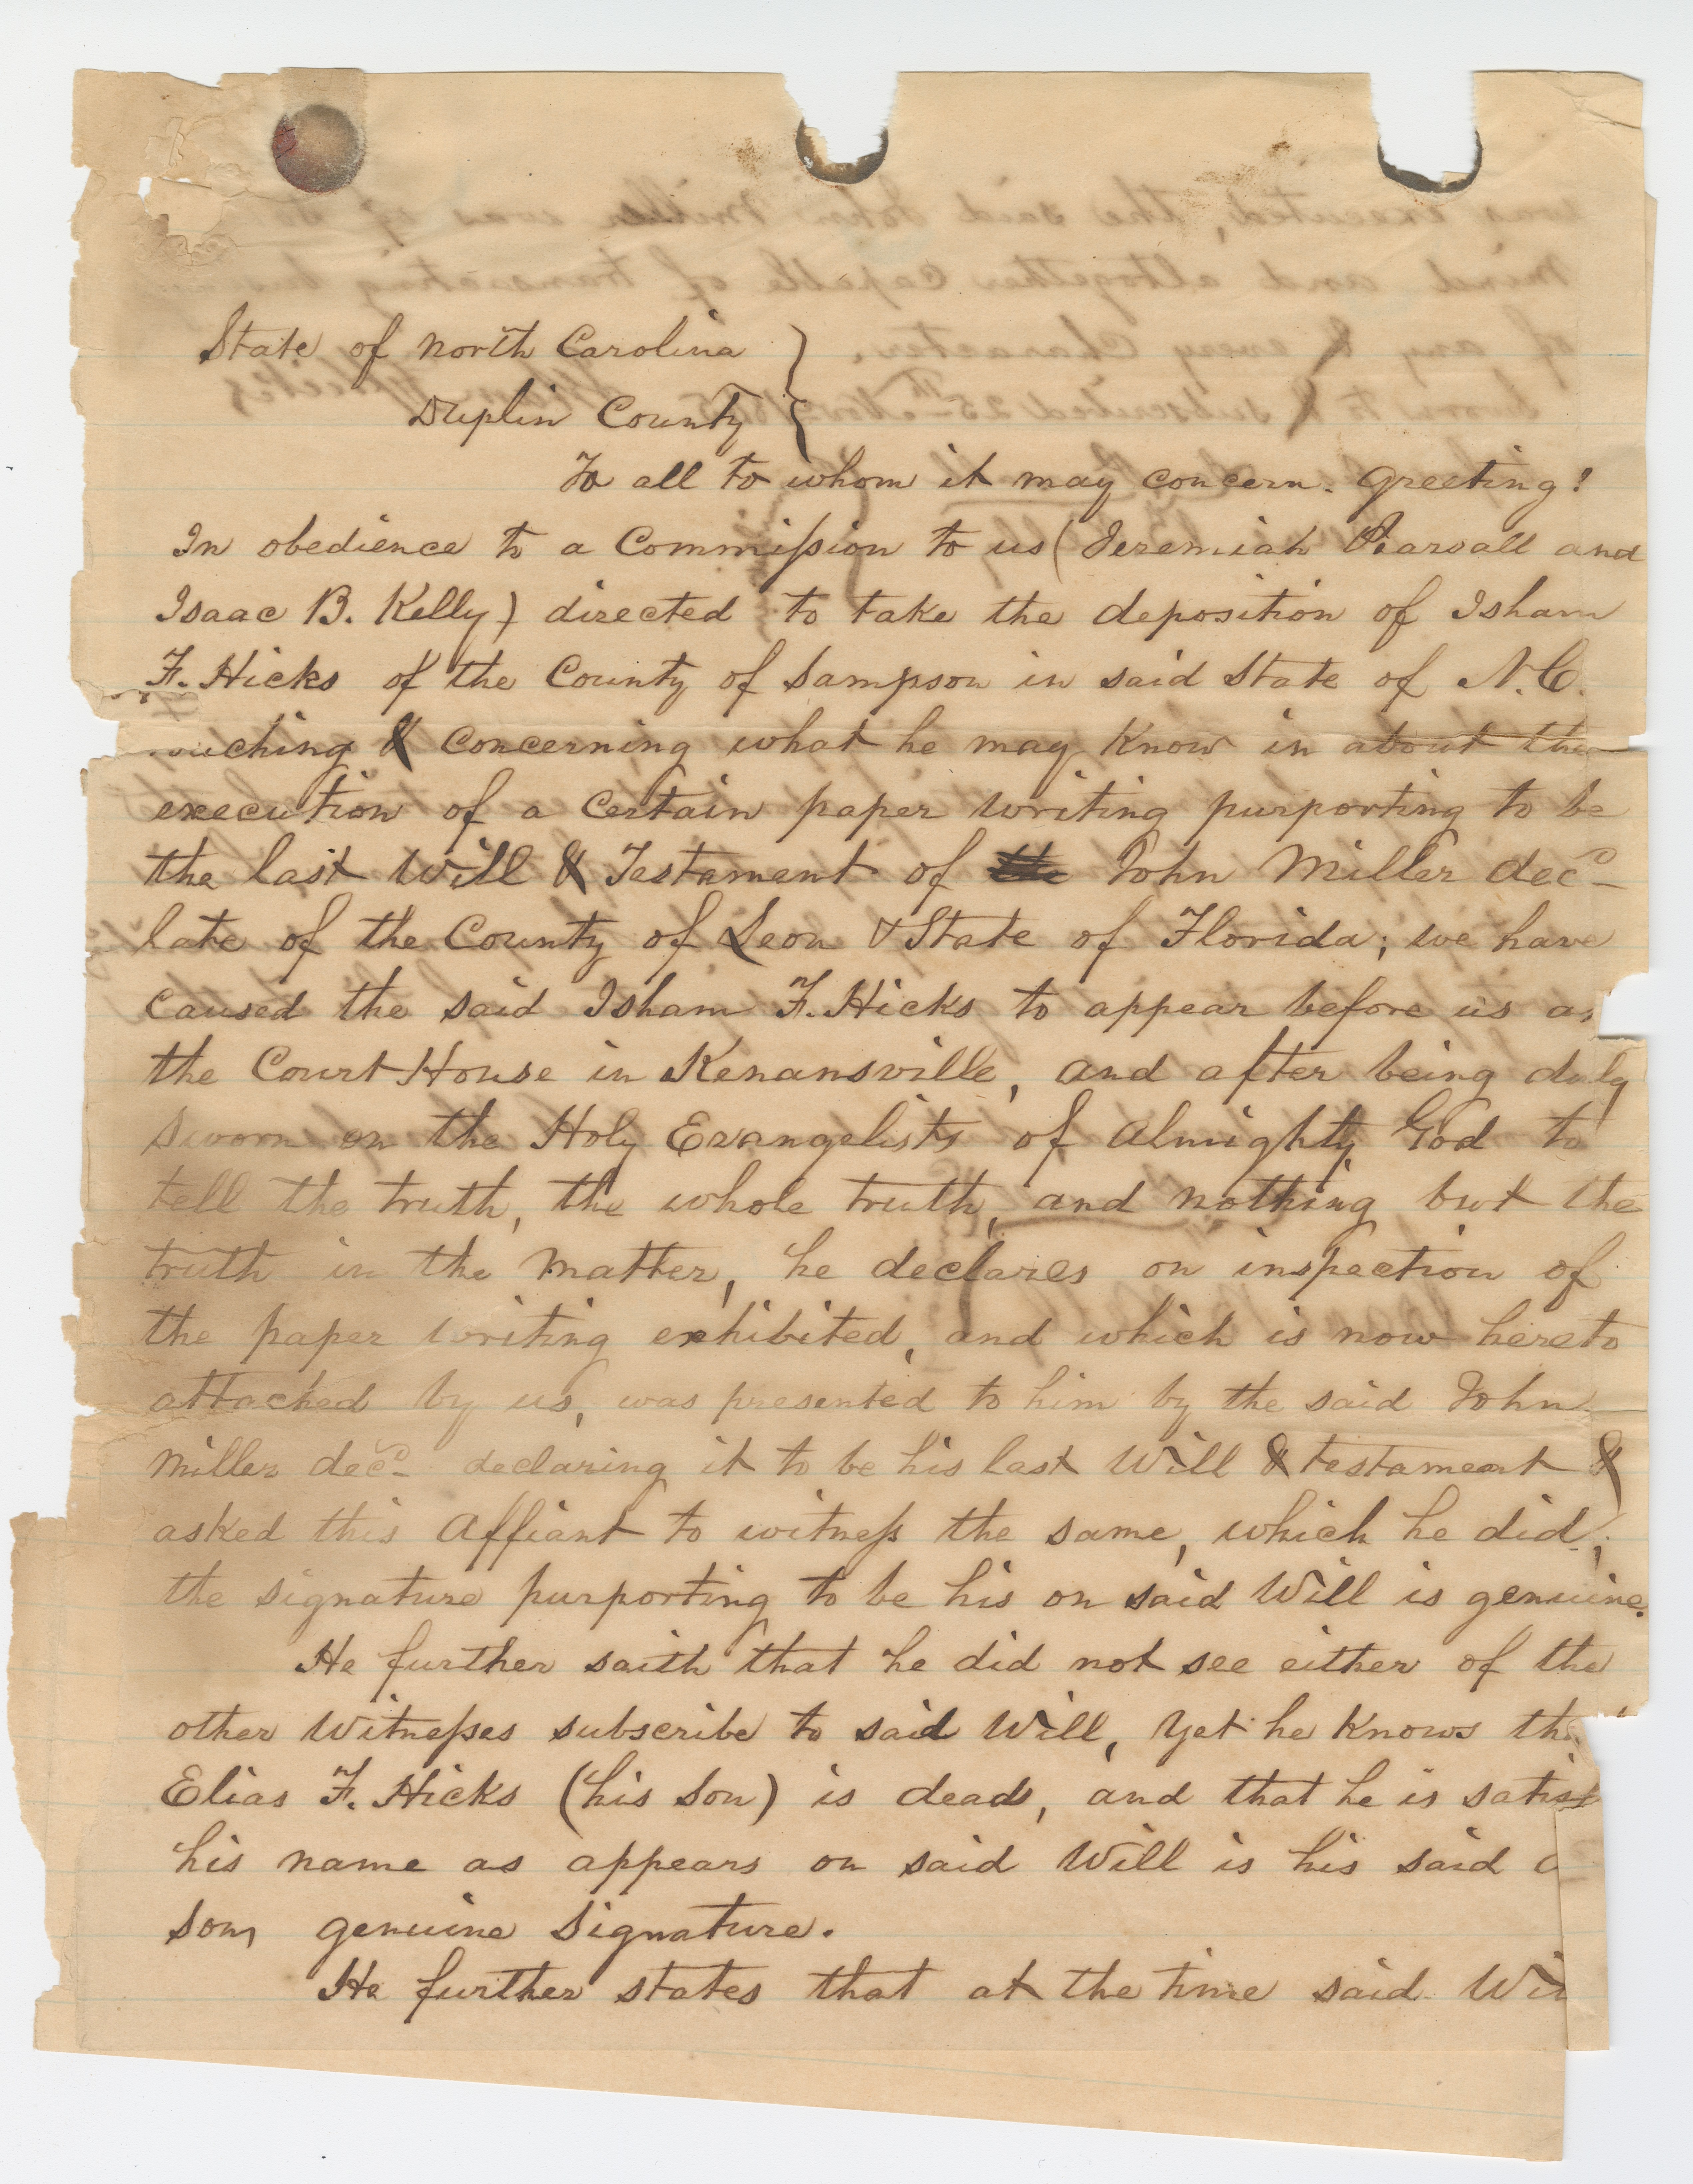 State of North Carolina }
Duplin County }
To all to whom it may concern. Greeting!
In obedience to a Commission to us (Jeremiah Pearsall and
Isaac B. Kelly) directed to take the deposition of Isham
F. Hicks of the County of Sampson in said State of N.C.
ouching & concerning what he may know in about the
execution of a certain paper writing purporting to be
the last Will & Testament of John Miller dec^d
late of the County of Leon & State of Florida; we have
caused the said Isham F. Hicks to appear before us a
the Court House in Kenansville, and after being duly
sworn on the Holy Evangelists of Almighty God to
tell the truth, the whole truth, and nothing but the
truth in the matter, he declares on inspection of
the paper writing exhibited, and which is now hereto
attached by us, was presented to him by the said John
Miller dec^d declaring it to be his last Will & testament &
asked this Affiant to witness the same, which he did;
the signature purporting to be his on said Will is genuine.
He further saith that he did not see either of the
other Witnesses subscribe to said Will, Yet he knows th
Elias F. Hicks (his son) is dead, and that he is satisf
his name as appears on said Will is his said
sons genuine signature.
He further states that at the time said Wil